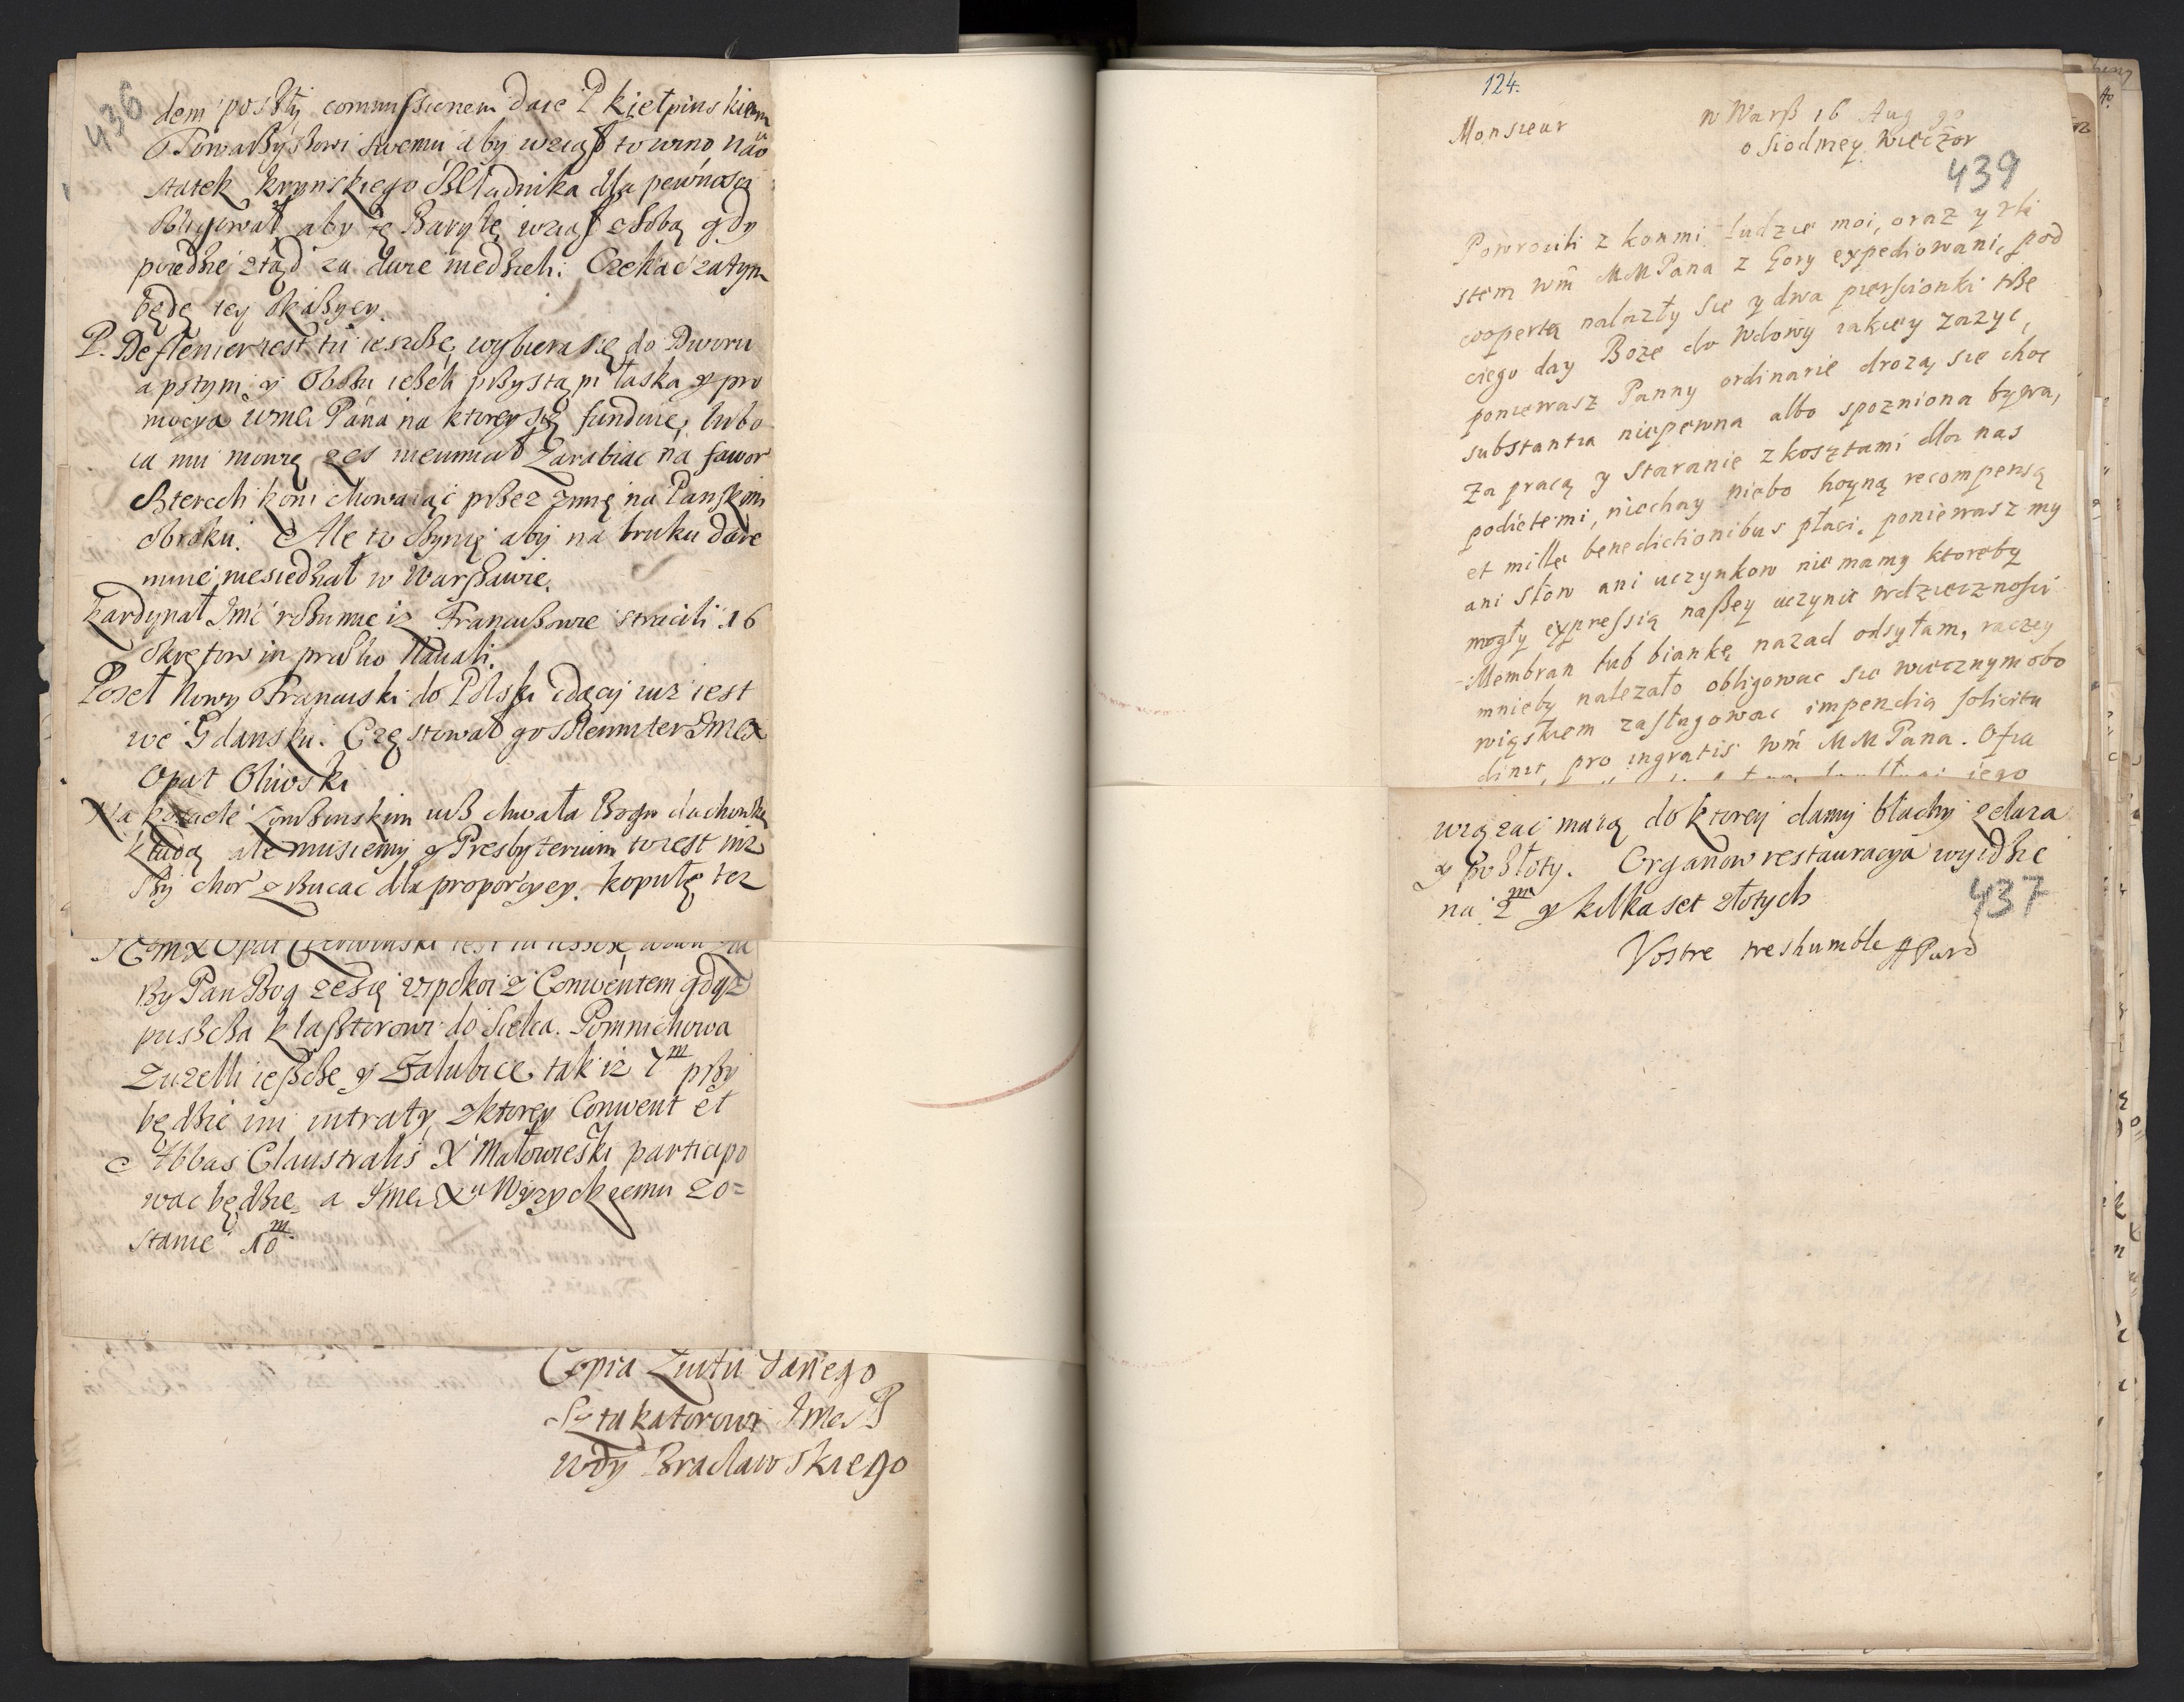 436
dem poszły commissionem daie P kiełpinskiem
Towarzyszowi swemu aby wziął to wino na o
statek krymskiego Składnika dla pewnosci
obligował aby tę Baryłę wziął z sobą gdy
poiedzie ztąd za dwie niedzieli. Czekac zatym
będę tey okazyey.
P. iest tu ieszcze, wybiera się do Dworu
a potym y Obozu ieżeli przystąpi łaska y pro
mocya Wmci Pána na ktorey się funduie, lubo
ia mu mowię żes nieumiał zarabiac na fawor
czterech koni chowaiąc przez zimę na Panskim
obroku. Ale to czynię aby na bruku dare
mnie niesiedział w Warszawie.
Kardynał Jmć rozumie iz Francuzowie stracili 16
okrętow in prælio Navali.
Poseł Nowy Francuski do Polski idący iuz iest
we Gdansku. Częstował go Jmcx
Opat Oliwski
Na kosciele iusz chwała Bogu dachowkę
kładą ale musiemy y Presbyterium to iest
chor zrzucac dla proporcyey. kopułę tez
Jmx Opat Czerwinski iest tu ieszcze,
By Pan Bog ze się uspokoi z Conwentem gdyz
puszcza klasztorowi do Sielca. Pomnichowa
Zuzelli ieszcze y Załubice tak iz 7 m przy
będzie im intraty, z ktorey Conwent et
Abbas Claustralis X Małowieski participo
wac będzie, a Jmci Xu Wyzyckiemu zo=
stanie 10 m.
Copia Listu danego
Sztukatorowi Jmci P
Wdy Braclawskiego
124.
w Warsz 16 Aug 90
Monsieur
o Siodmey wieczor
439
Powrocili z konmi ludzie moi, oraz y
stem Wm MM Pana z Gory expediowani, pod
copertą nalazły się y dwa piersionki
ciego day Boze do Wdowy iakiey zazyc,
poniewasz Panny ordinarie drozą się choc
substantia niepewna albo spozniona bywa,
Za pracą y Staranie z kosztami dla nas
podietemi, niechay niebo hoyną recompensą
et mille benedictionibus płaci, poniewasz my
ani Słow ani uczynkow nie mamy ktoreby
mogły expressią naszey uczynic wdzięcznosci
Membran lub biankę nazad odsyłam, raczey
mnieby nalezało obligowac się wiecznym obo
wiąskiem zasługowac impendia solicitu
dinis pro ingratis Wm MM Pana. Ofia
iego
wiązac maią do ktorey damy blachy zelaza
y pozłoty. Organow restauracya wyidzie
na 2 m y kilka set złotych
437
Vostre treshumble